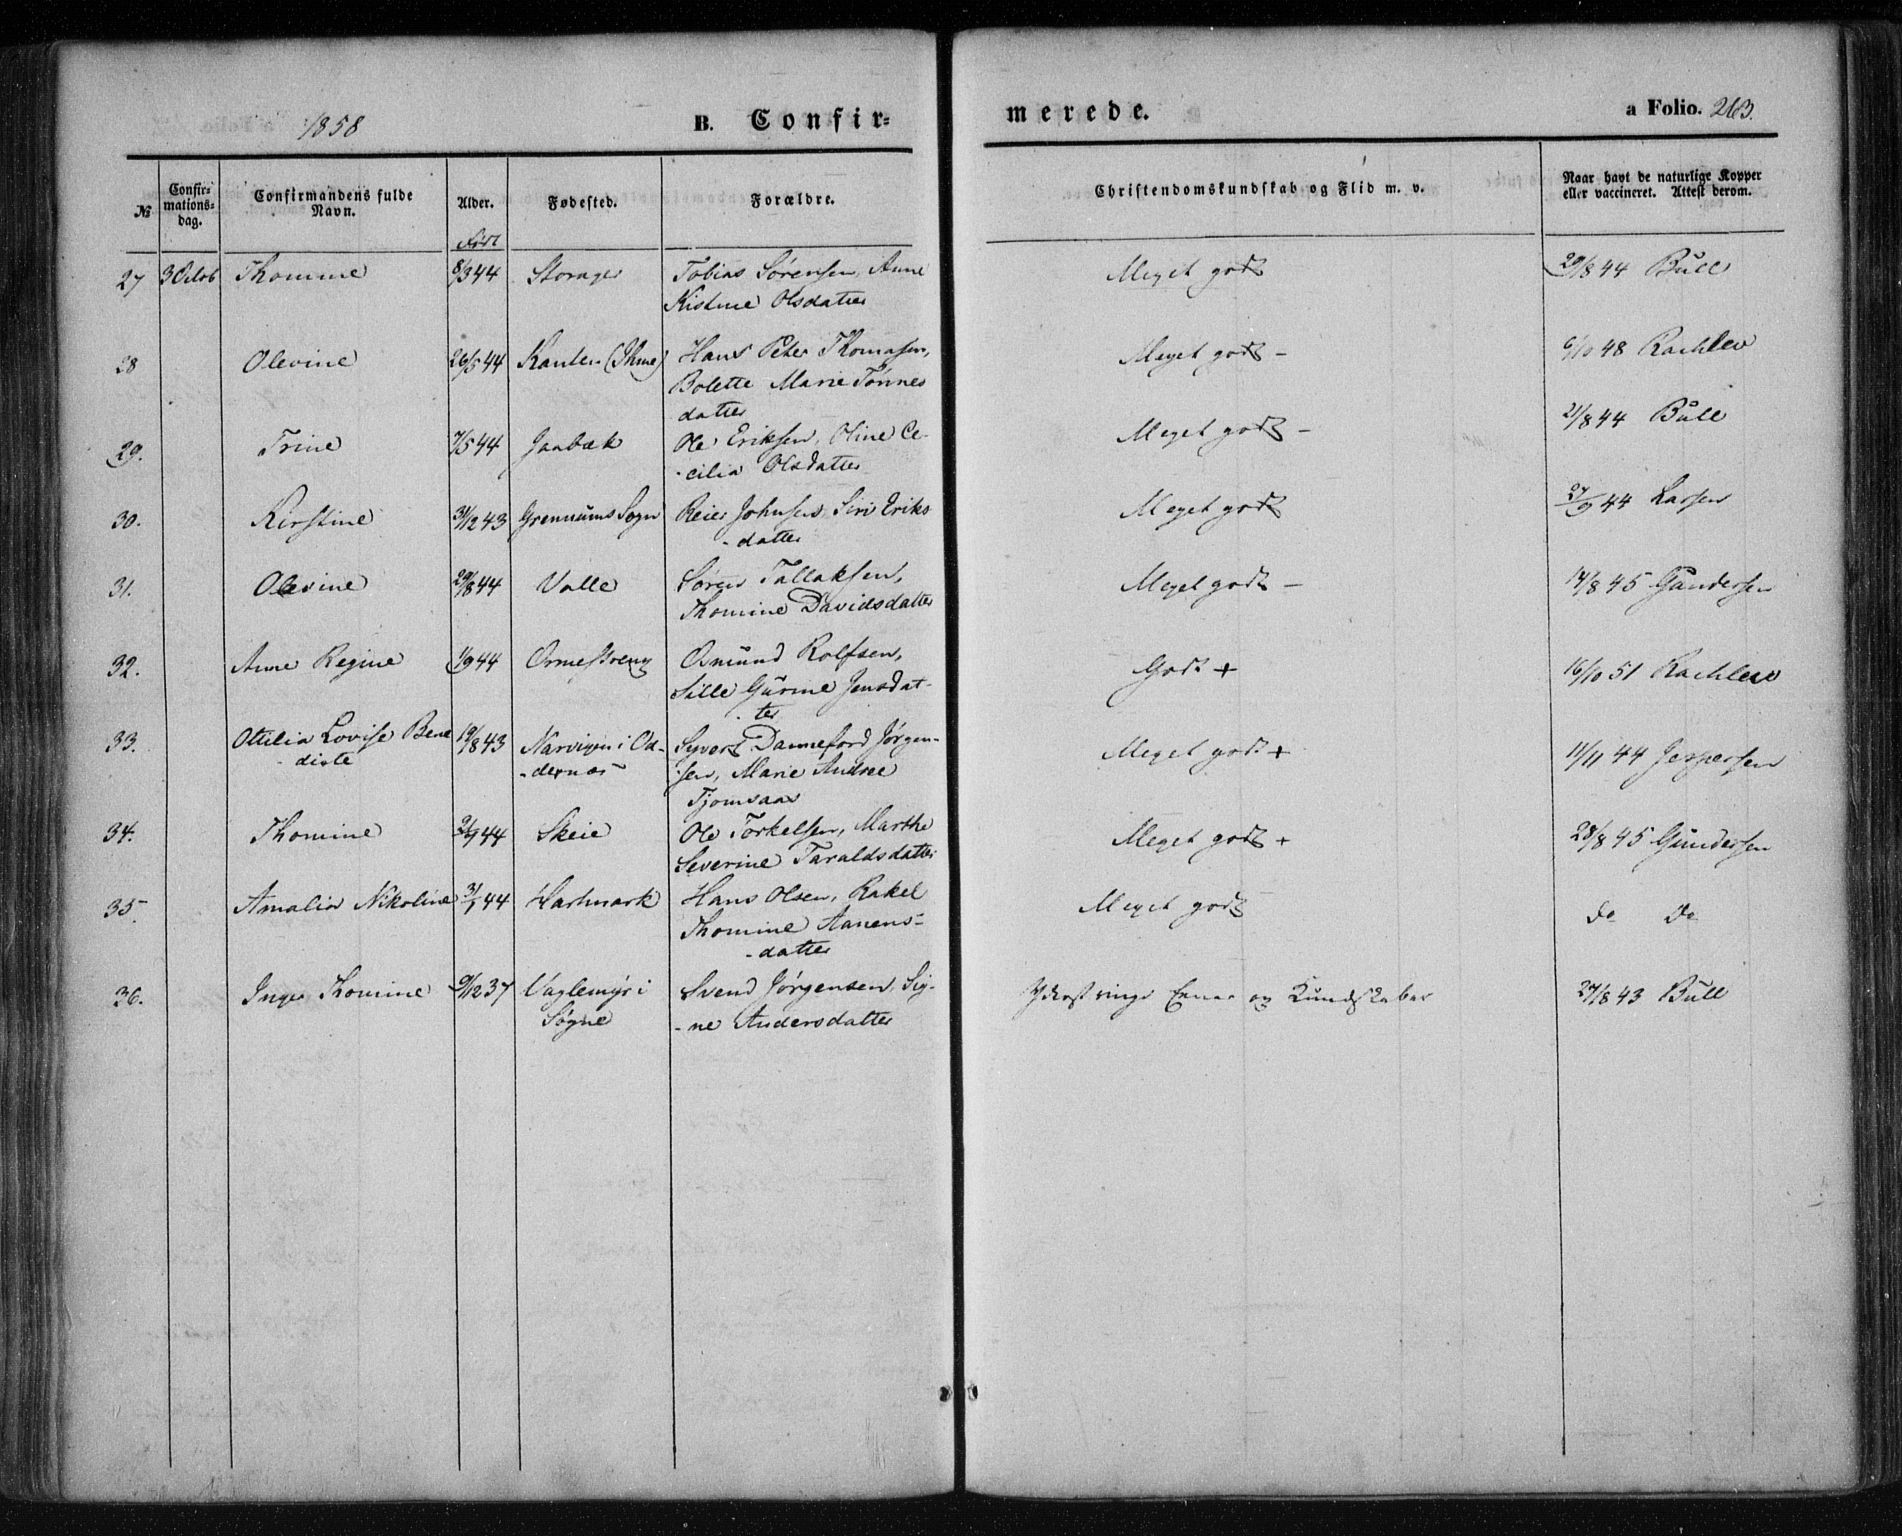 1858 B. Confir= merede. a Folio. 263.
№ Confir=mations=dag. Confirmandens fulde Navn. Alder. Fødested. Forældre. Christendomskundskab og Flid m. v. Naar havt de naturlige Kopper eller vaccineret. Attest derom.
Født
27 3 Octob Thomine 8/3 44 Tobias Sørensen, Anne Meget godt 29/8 44 Bull
Kistine Olsdatter
28 Olevine 26/5 44 Hans Peter Thomasen, Meget godt - 6/10 48 Rachlew
Bolette Marie Tønnes
datter
29. Trine 7/5 44 Jaabæk Ole Eriksen, Oline Ce- Meget godt - 21/8 44 Bull
-cilia Olsdatter
30. Kirstine 31/12 43 Grennums Sogn Reier Johnsen, Siri Eriks Meget godt 27/9 44 Larsen
-datter
31. Olevine 29/8 44 Valle Søren Tallaksen, Meget godt - 14/8 45 Gundersen
Thomine Davidsdatter
32. Anne Regine 1/9 44 Ormestreng Osmund Rolfsen, Godt + 16/10 51 Rachlew
Sille Gurine Jensdat-
-ter
33. Ottilia Lovise Bene 19/8 43 Narvigen i Od- Syvert Danneford Jørgen- Meget godt + 11/11 44 Jespersen
-dicte -dernæs -sen, Marie Andrea
Tjomsaas
34. Thomine 2/9 44 Skeie Ole Torkelsen, Marthe Meget godt + 28/8 45 Gundersen
Severine Taraldsdatter
35. Amalia Nikoline 31/1 44 Hartmark Hans Olsen, Rakel Meget godt do Do
Thomine Aanens-
-datter
36. Inger Thomine 9/12 37 Vaglemyr i Svend Jørgensen, Sig- Yderst ringe Evner og Kundskaber 27/8 43 Bull
Søgne -ne Andersdatter